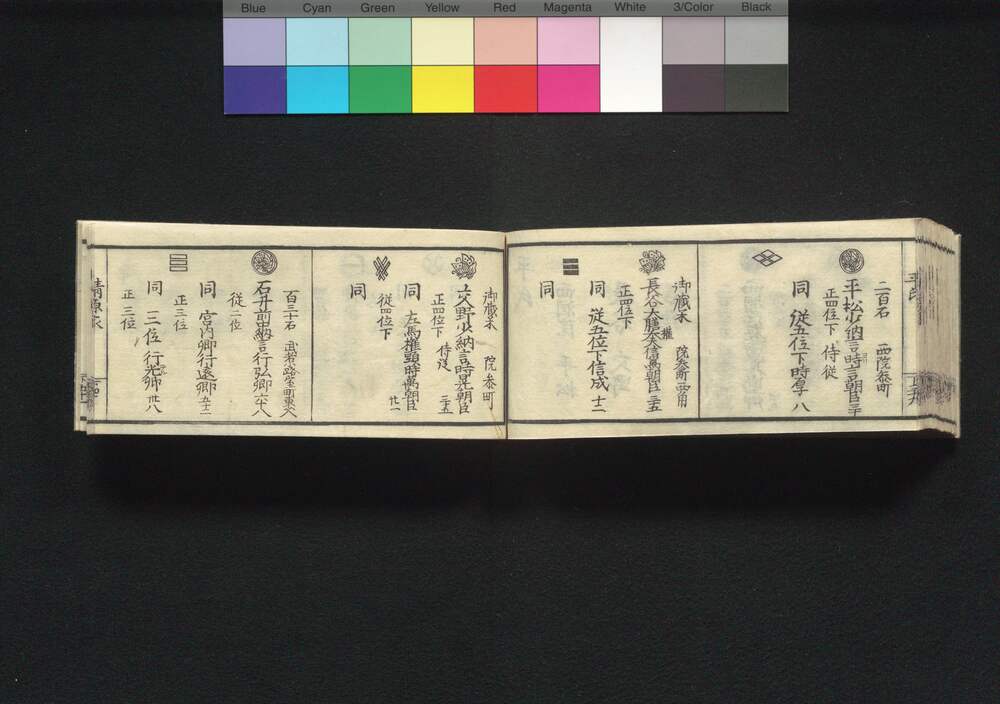 Blue Cyan Green Yellow Red Magenta White 3/Color Black
平氏
二百石 西院参町
平松少納言時言朝臣三十
正四位下 侍従
同 従五位下時厚 八
御蔵米 院参町西角
長谷大膳権大夫信篤朝臣三五
正四位下
同 従五位下信成 十二
同
御蔵米 院参町
交野少納言時晃朝臣三五
正四位下 侍従
同 左馬権頭時萬朝臣廿一
従四位下
同
百三十石 武者小路室町東へ入
石井前中納言行弘卿六十八
従二位
同 宮内卿行遠卿五十二
正三位
同 三位行光卿 廿八
正三位
清原家